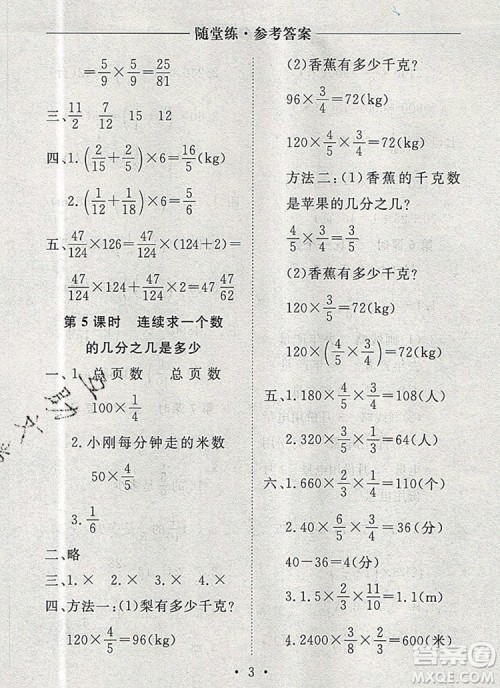 随堂练·参考答案
=5/9×5/9=25/81
三、11/2 7/12 15 12
四、1.(2/15+2/5)×6=16/5(kg)
2.(1/12+1/18)×6=5/6
五、47/124×126=47/124×(124+2)=
47/124×124+47/124×2=47 47/62
第5课时 连续求一个数
的几分之几是多少
一、1.总页数 总页数
100×1/4
2.小刚每分钟走的米数
50×4/5
3.1/6
二、略
三、1.× 2.× 3.× 4.×
四、方法一:(1)梨有多少千克?
120×4/5=96(kg)
(2)香蕉有多少千克?
96×3/4=72(kg)
120×4/5×3/4=72(kg)
方法二:(1)香蕉的千克数
是苹果的几分之几?
4/5×3/4=3/5
(2)香蕉有多少千克?
120×3/5=72(kg)
120×(4/5×3/4)=72(kg)
五、1.180×4/5×3/4=108(人)
2.320×1/4×4/5=64(人)
六、1.660×1/2×1/3=110(个)
2.40×4/5×9/8=36(分)
40-36=4(分)
3.3/2×2/3×11/10=1.1(m)
4.2400×3/8×2/3=600(米)
·3·
答案圈
MXQE.COM